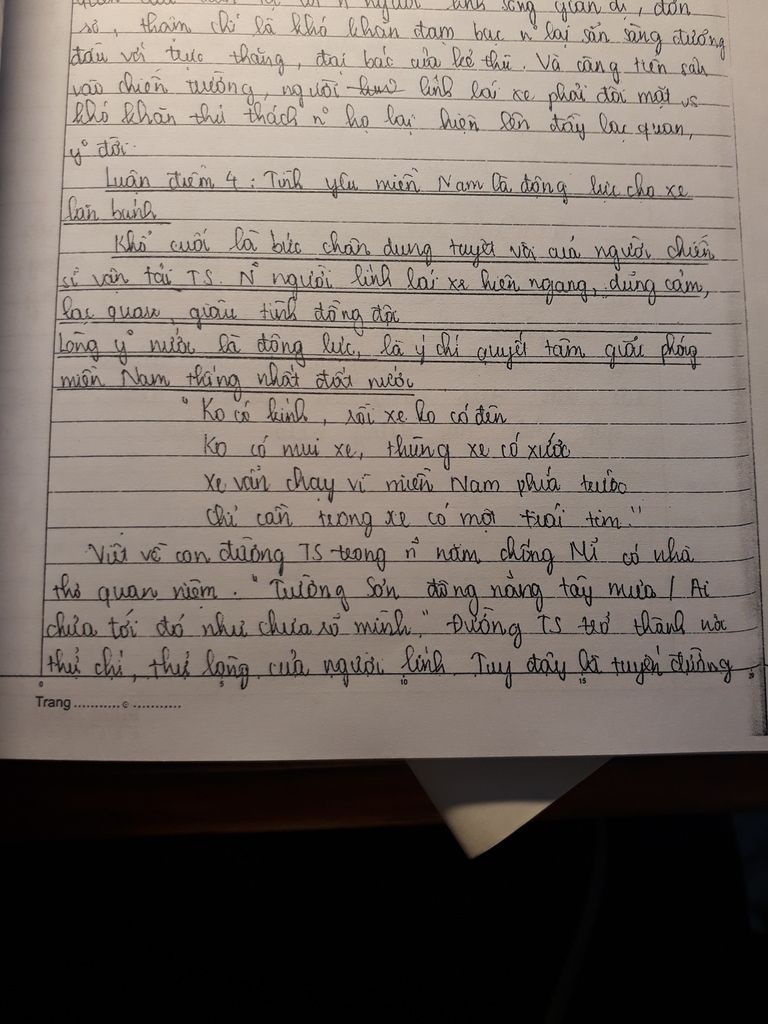 người lính sống giản dị, đơn
sơ, thậm chí là khó khăn đạm bạc nº lại sẵn sàng đương
đầu với trực thăng, đại bác của kẻ thù. Và càng tiến sâu
vào chiến trường, người lính lái xe phải đối mặt vs
khó khăn thử thách nº họ lại hiện lên đầy lạc quan,
yº đời.
Luận điểm 4 : Tình yêu miền Nam là động lực cho xe
lăn bánh
Khổ cuối là bức chân dung tuyệt vời của người chiến
sĩ vận tải TS. Nº người lính lái xe hiên ngang, dũng cảm,
lạc quan, giàu tình đồng đội
Lòng yº nước là động lực, là ý chí quyết tâm giải phóng
miền Nam thống nhất đất nước
"Ko có kính, rồi xe ko có đèn
Ko có mui xe, thùng xe có xước
Xe vẫn chạy vì miền Nam phía trước
Chỉ cần trong xe có một trái tim."
Viết về con đường TS trong nº năm chống Mĩ có nhà
thơ quan niệm. "Trường Sơn đông nắng tây mưa / Ai
chưa tới đó như chưa rõ mình." Đường TS trở thành nơi
thử chí, thử lòng của người lính. Tuy đây là tuyến đường
0 5 10 15 20
Trang